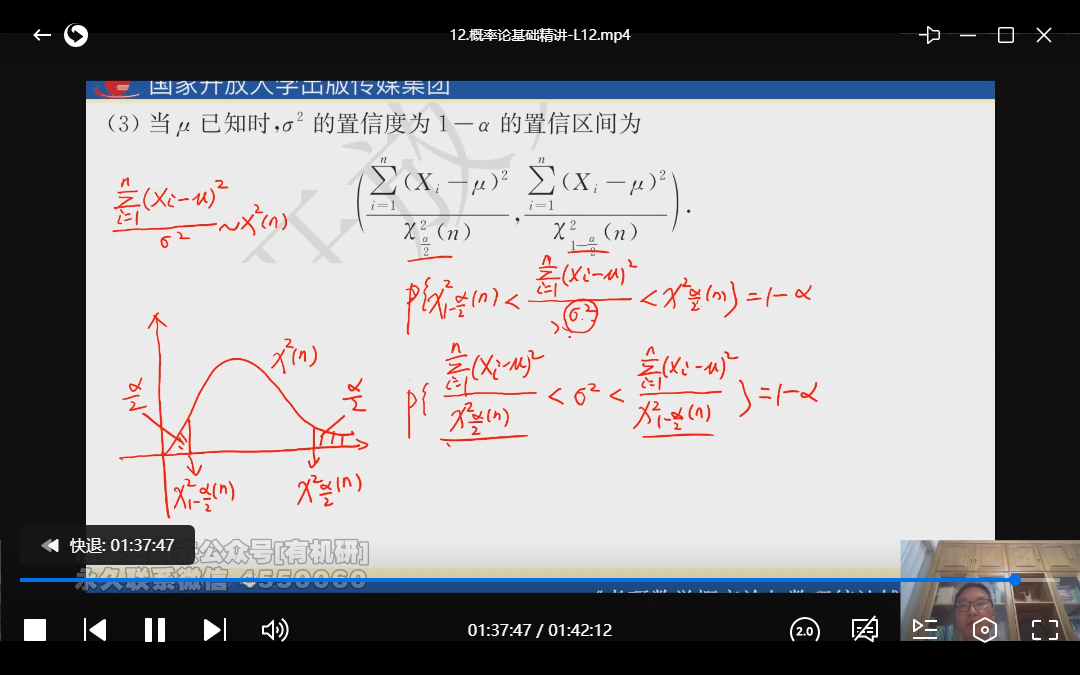 12.概率论基础精讲-L12.mp4
国家开放大学出版传媒集团
(3) 当 μ 已知时,σ² 的置信度为 1-α 的置信区间为
( ∑_{i=1}^{n} (X_i-μ)² / χ²_{α/2}(n) , ∑_{i=1}^{n} (X_i-μ)² / χ²_{1-α/2}(n) ).
∑_{i=1}^{n} (X_i-μ)² / σ² ~ χ²(n)
P{ χ²_{1-α/2}(n) < ∑_{i=1}^{n} (X_i-μ)² / σ² < χ²_{α/2}(n) } = 1-α
P{ ∑_{i=1}^{n} (X_i-μ)² / χ²_{α/2}(n) < σ² < ∑_{i=1}^{n} (X_i-μ)² / χ²_{1-α/2}(n) } = 1-α
χ²(n)
α/2
α/2
χ²_{1-α/2}(n)
χ²_{α/2}(n)
快退: 01:37:47
公众号[有机研]
永久联系微信 4550060
01:37:47 / 01:42:12
2.0